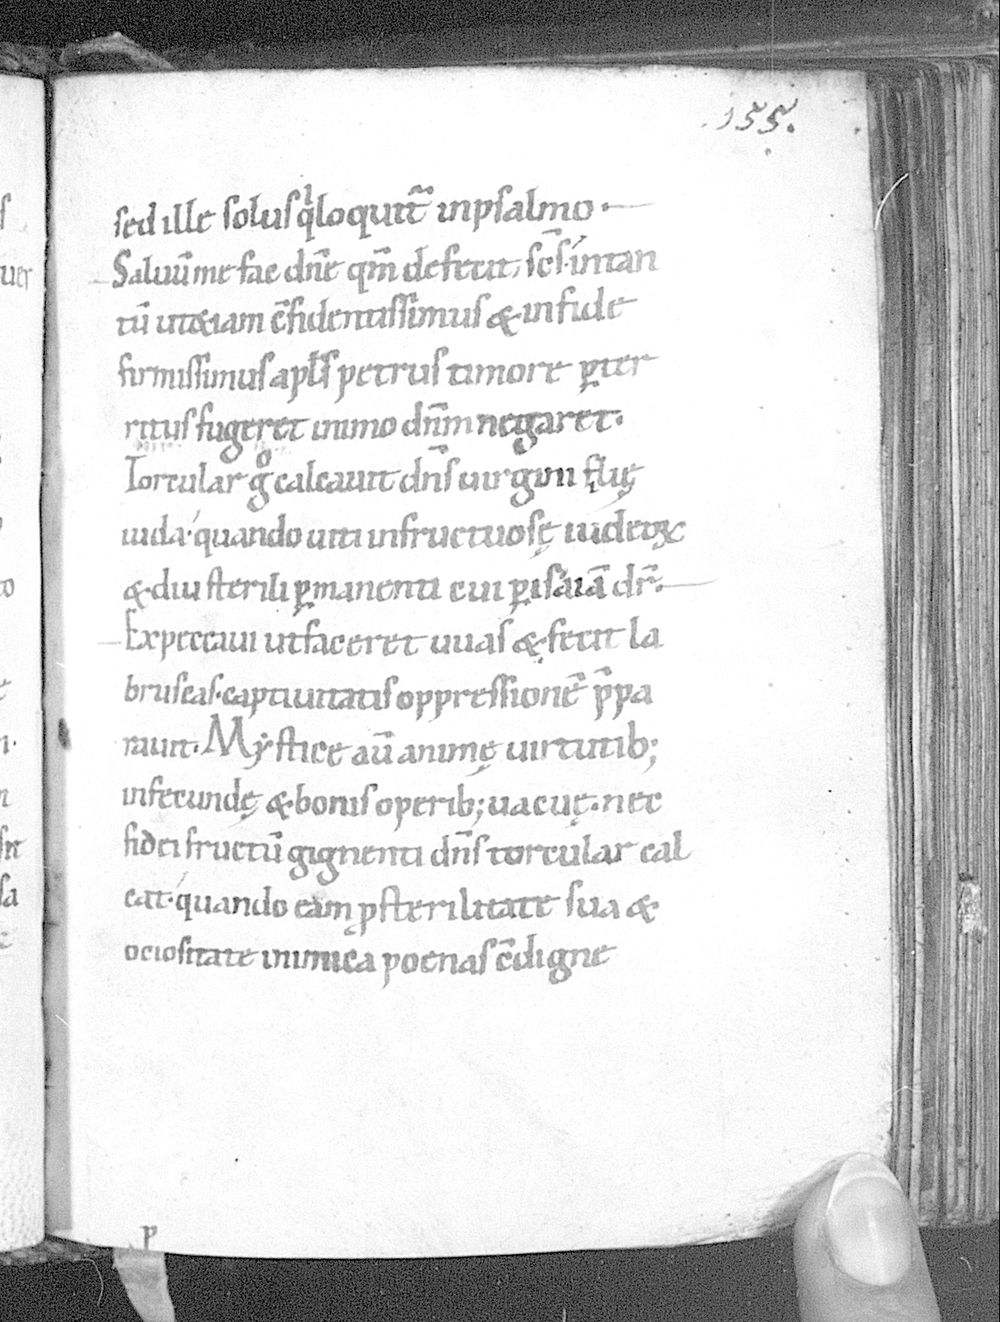 .155.
sed ille solus qͥ loquit̄ in psalmo ·
Saluū me fac dn̄e qm̄ defecit sc̄s. in tan
tū ut & iam c̄fidentissimus & in fide
firmissimus apl̄s petrus timore ꝑter
ritus fugeret immo dn̄m negaret.
Torcular gͦ calcauit dn̄s uirgini filię
iuda. quando uiti infructuosę iudeoꝝ
& diu sterili ꝑmanenti cui ꝑ isaiā dr̄.
Expectaui ut faceret uuas & fecit la
bruscas. captiuitatis oppressionē p̄pa
rauit. Mẏstice aū animę uirtutib;
infecundę & bonis operib; uacuę. nec
fidei fructū gignenti dn̄s torcular cal
cat. quando eam ꝓ sterilitate sua &
ociositate inimica poenas c̄digne
p